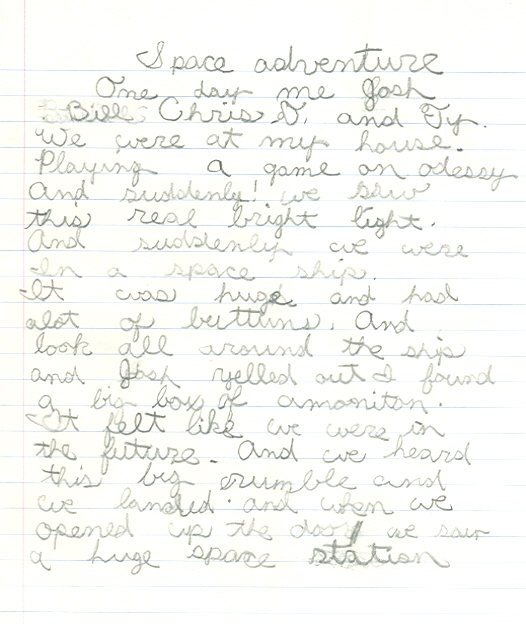 Space adventure
One day me Josh
Bill Chris D. and Ty.
We were at my house.
Playing a game on odessy
And suddenly! we saw
this real bright light.
And suddenly we were
In a space ship.
It was huge and had
alot of buttuns. And
look all around the ship
and Josh yelled out I found
a big box of amoniton.
It felt like we were in
the future. And we heard
this big crumble and
we landed. and when we
opened up the door we saw
a huge space station